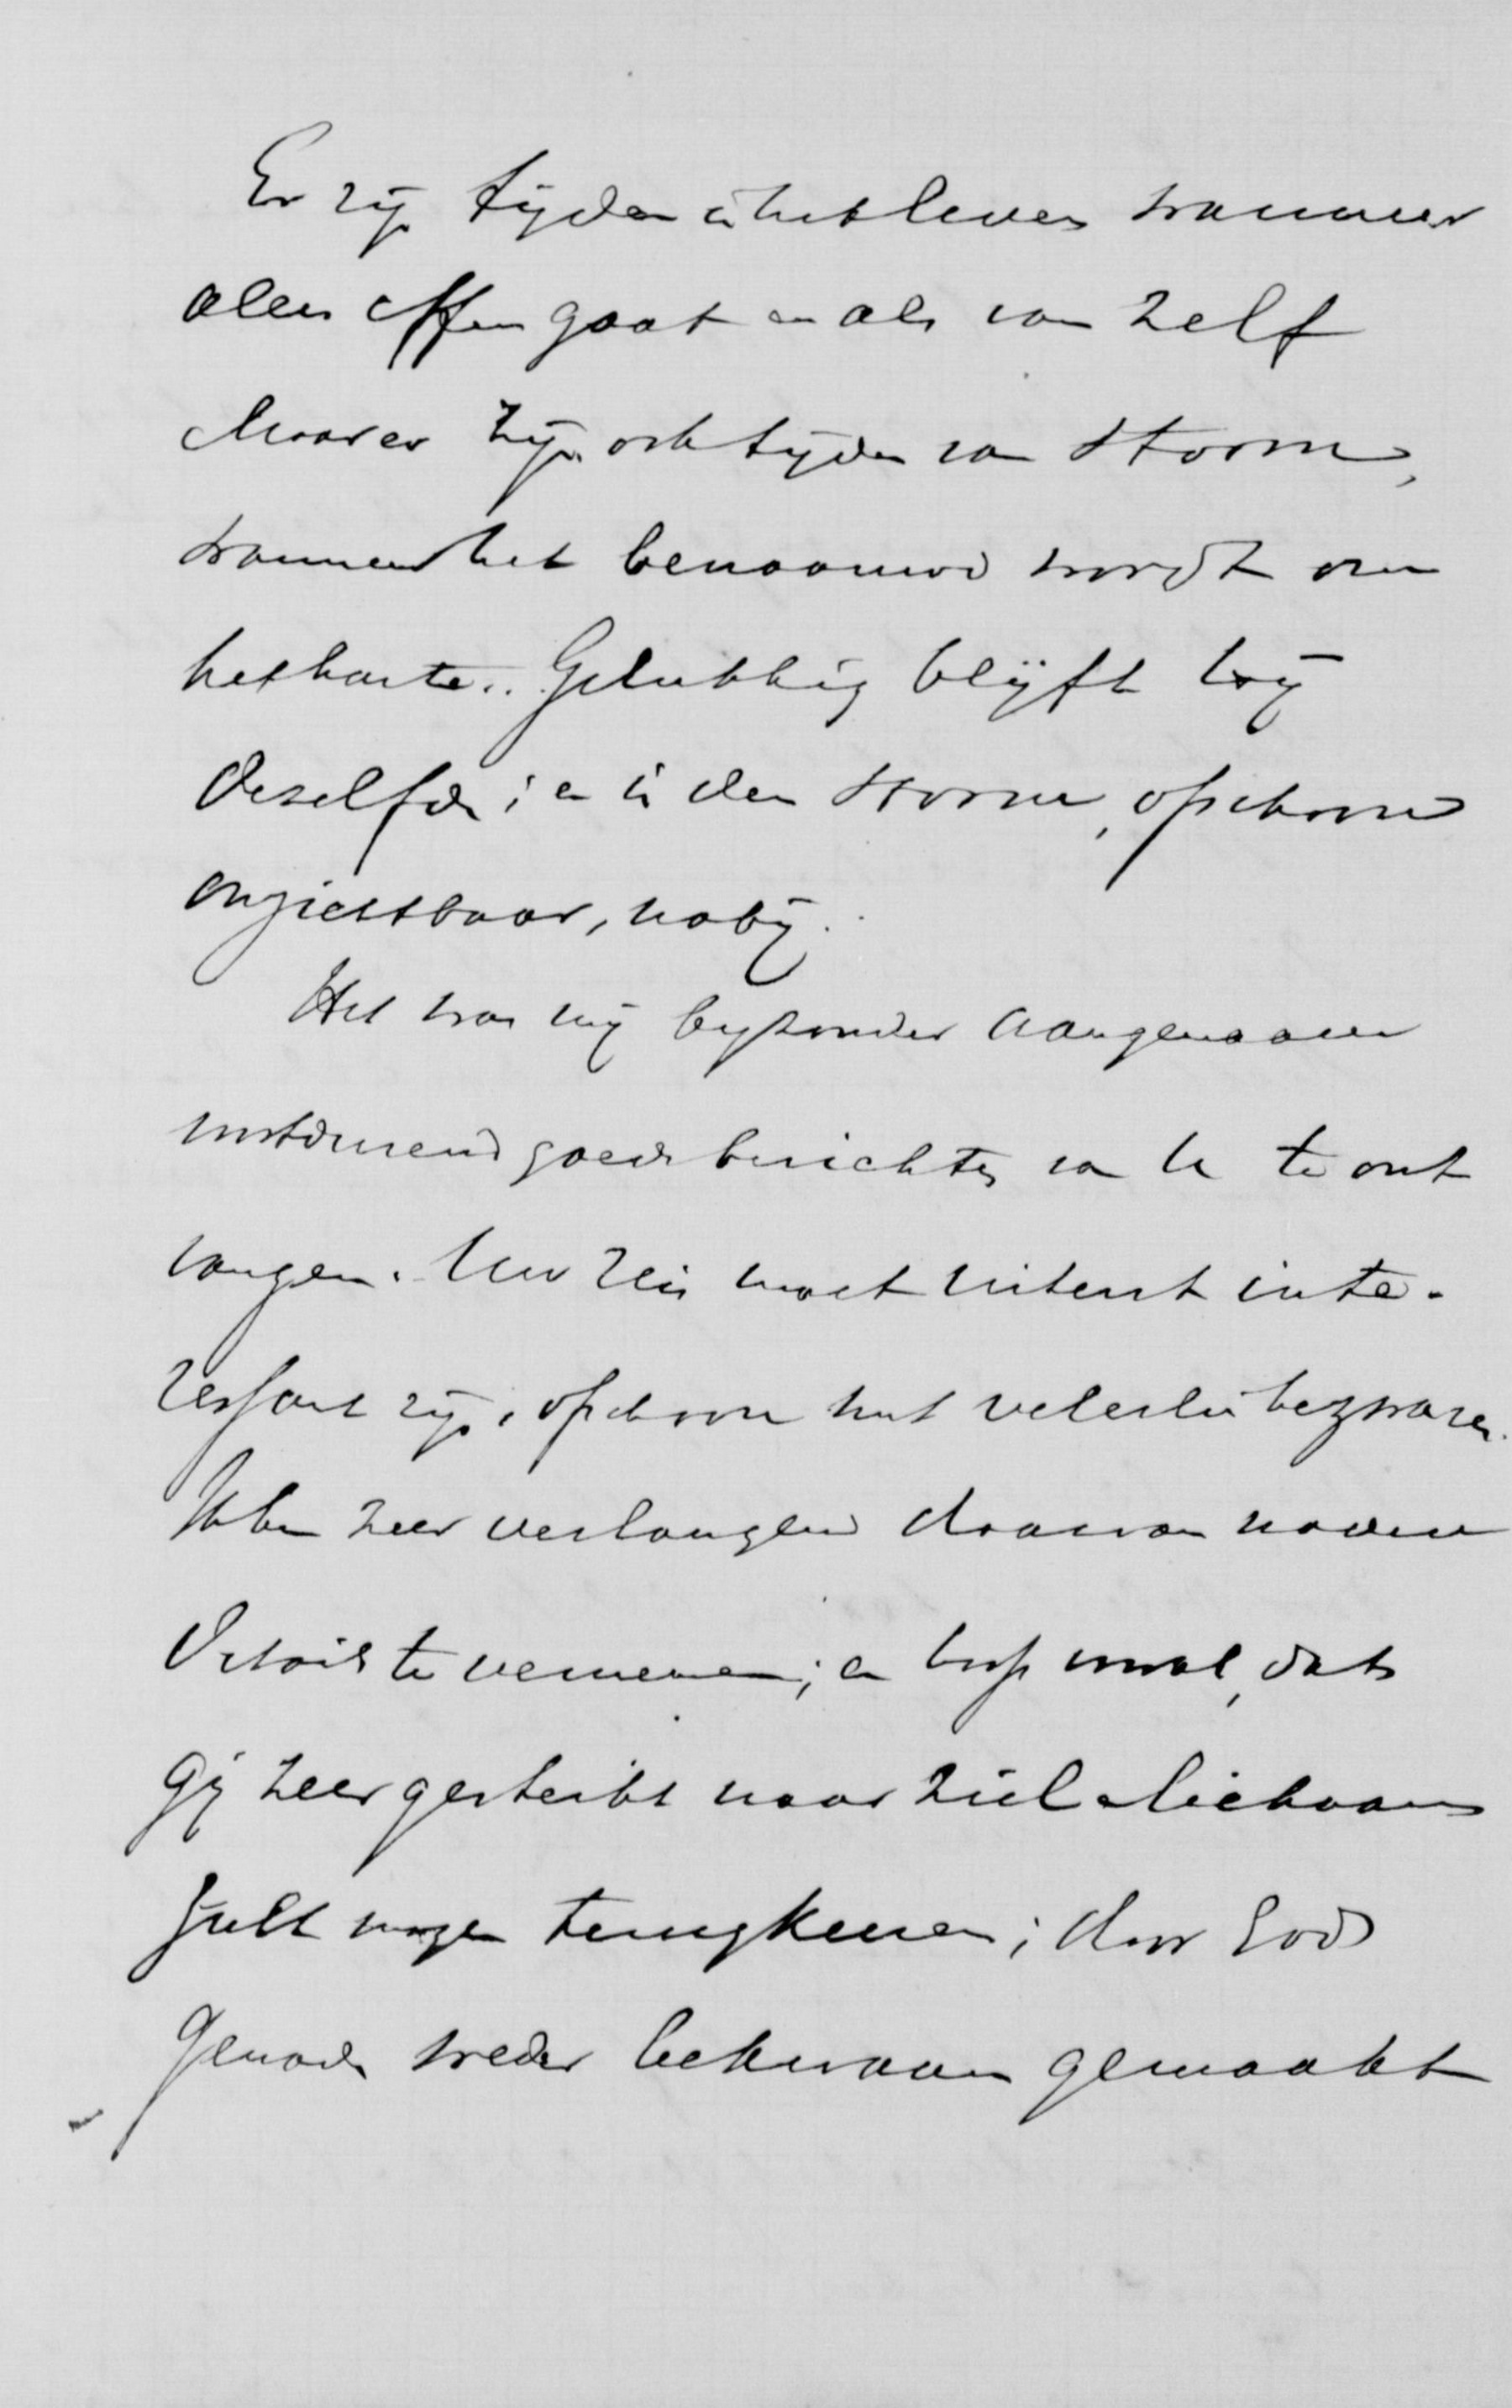 Er zijn tijden in het leven wanneer
alles effen gaat en als van zelf
Maar er zijn ook tijden van storm,
wanneer het benaauwd wordt om
het harte. Gelukkig blijft Hij
dezelfde; en in den storm, ofschoon
onzichtbaar, nabij.
Het was mij byzonder aangenaam
goede berichten van U te ont
vangen. Uw reis moet uiterst inte-
ressant zijn, ofschoon met velerlei bezwaren.
Ik ben zeer verlangend daarvan nadere
details te vernemen; en hoop vooral, dat
gij zeer gesterkt naar ziel en lichaam
zult mogen terugkeeren; door Gods
genade weder bekwaam gemaakt